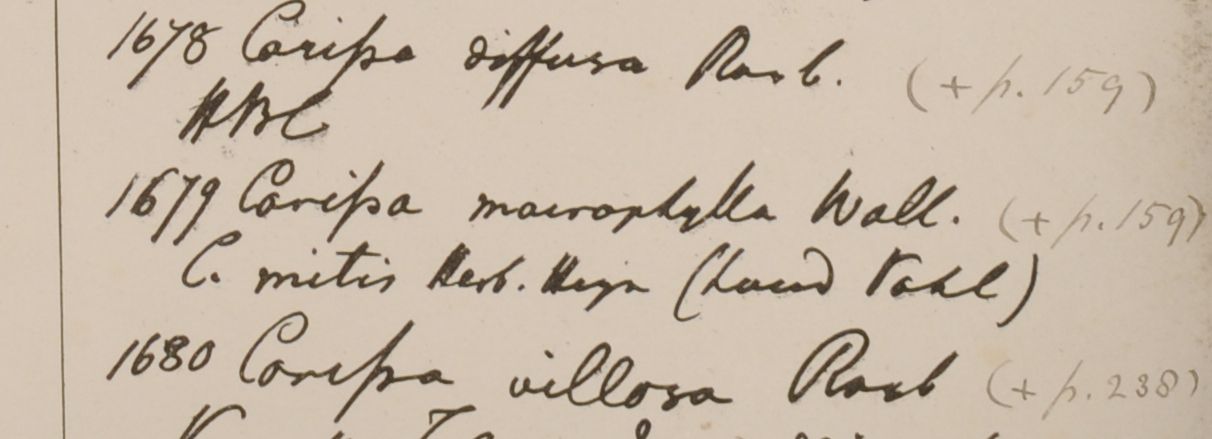 1678 Carissa diffusa Roxb. (+ p. 159)
HBC
1679 Carissa macrophylla Wall. (+ p. 159)
C. mitis Herb. Heyn (haud Vahl)
1680 Carissa villosa Roxb (+ p. 238)